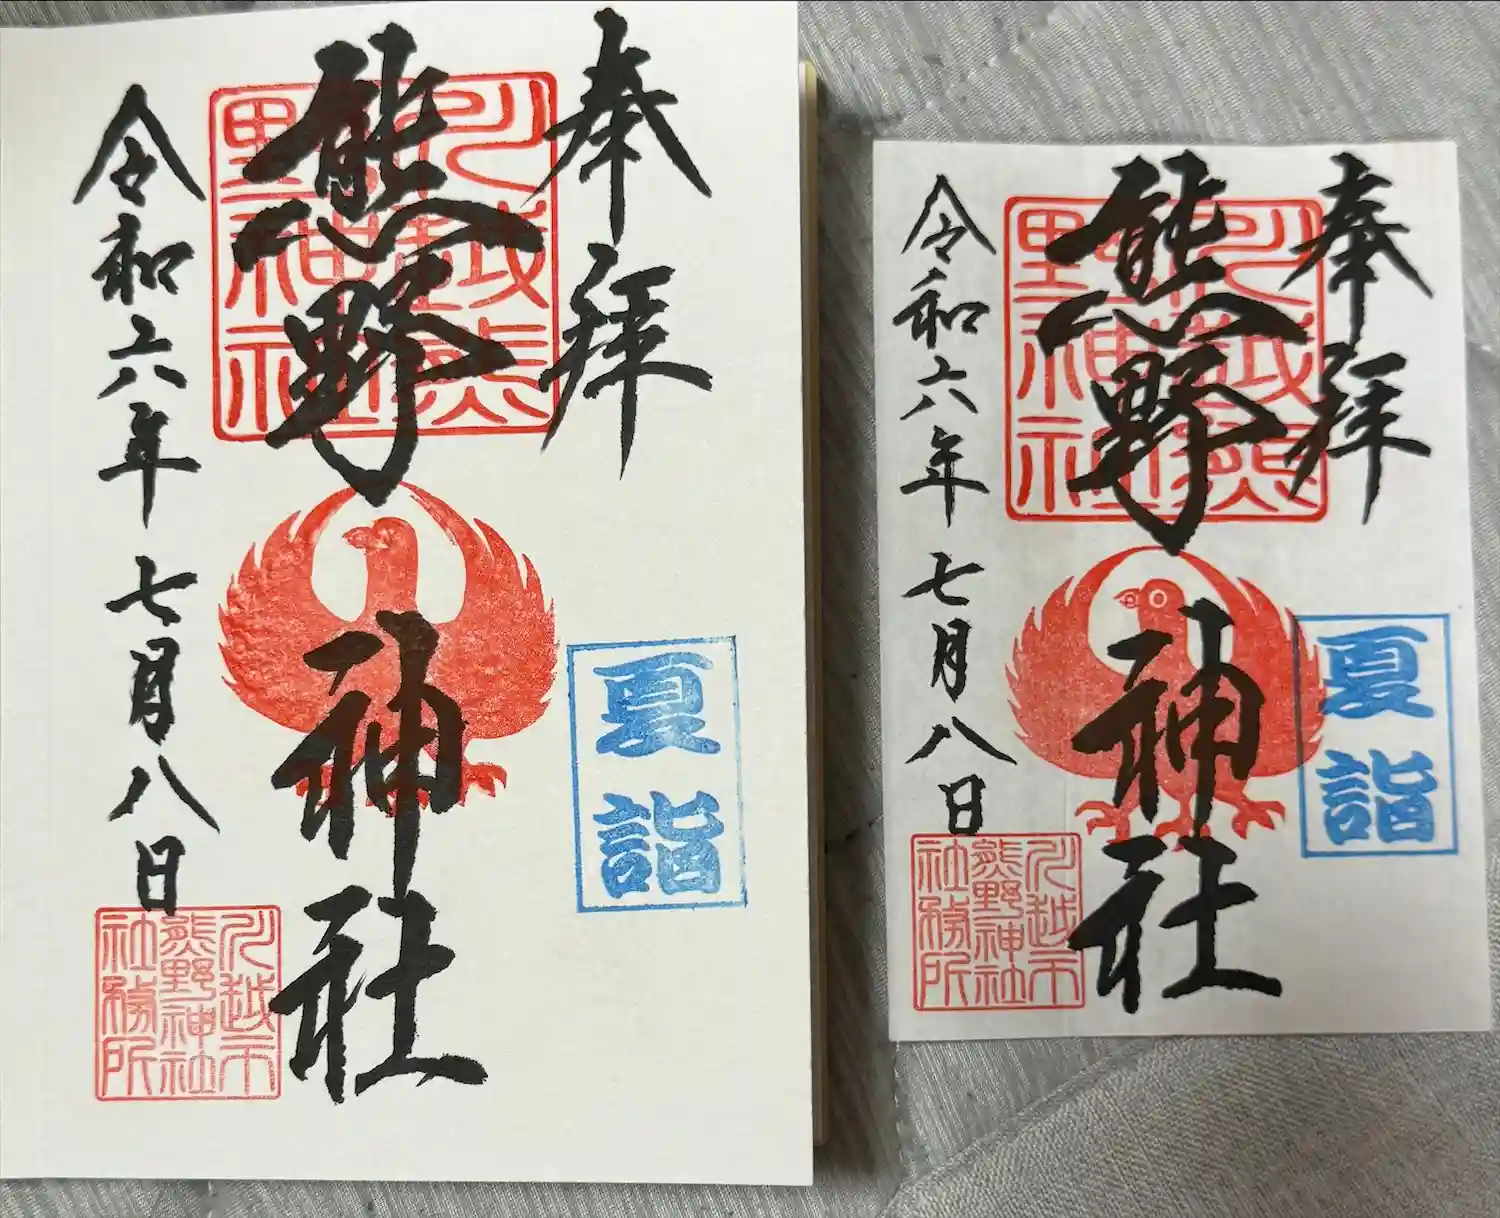 奉拝
川越熊野神社
熊野神社
夏詣
令和六年七月八日
川越市
熊野神社
社務所
奉拝
川越熊野神社
熊野神社
夏詣
令和六年七月八日
川越市
熊野神社
社務所